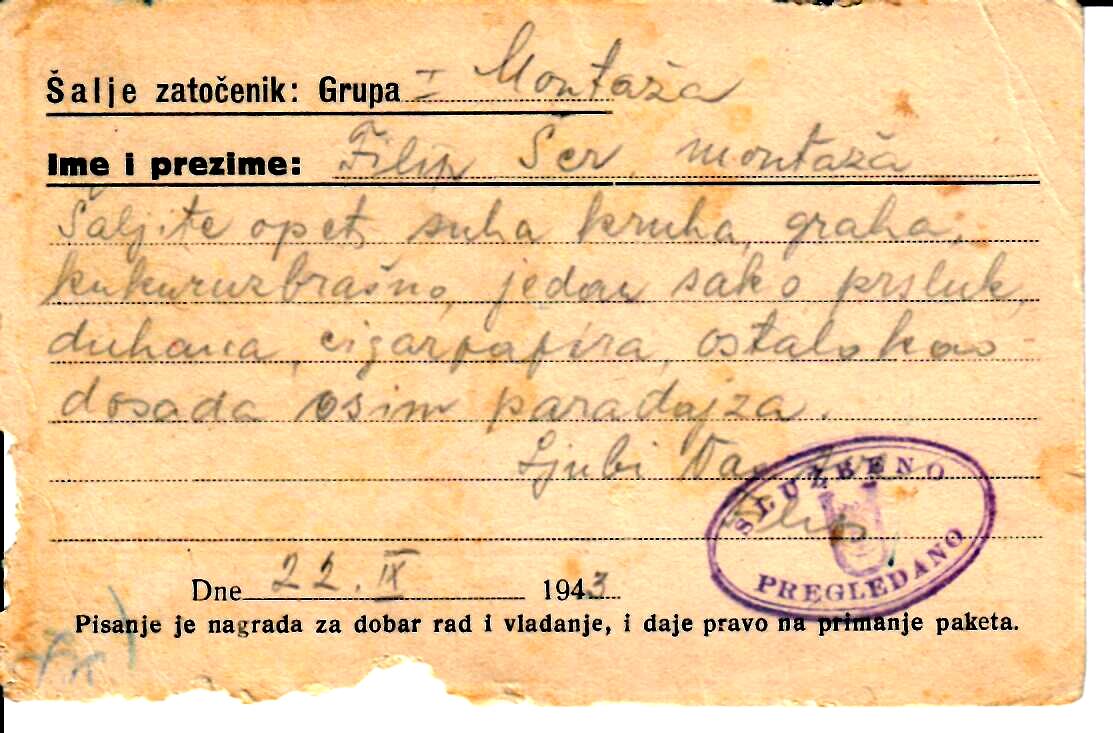 Šalje zatočenik: Grupa I Montaža
Ime i prezime: Filip Šer, montaža
Šaljite opet, suha kruha, graha,
kukuruzbrašno, jedan sako prsluk,
duhana, cigarpapira, ostalo kao
dosada osim paradajza.
Ljubi Vas
SLUŽBENO
PREGLEDANO
Dne 22. IX 1943
Pisanje je nagrada za dobar rad i vladanje, i daje pravo na primanje paketa.